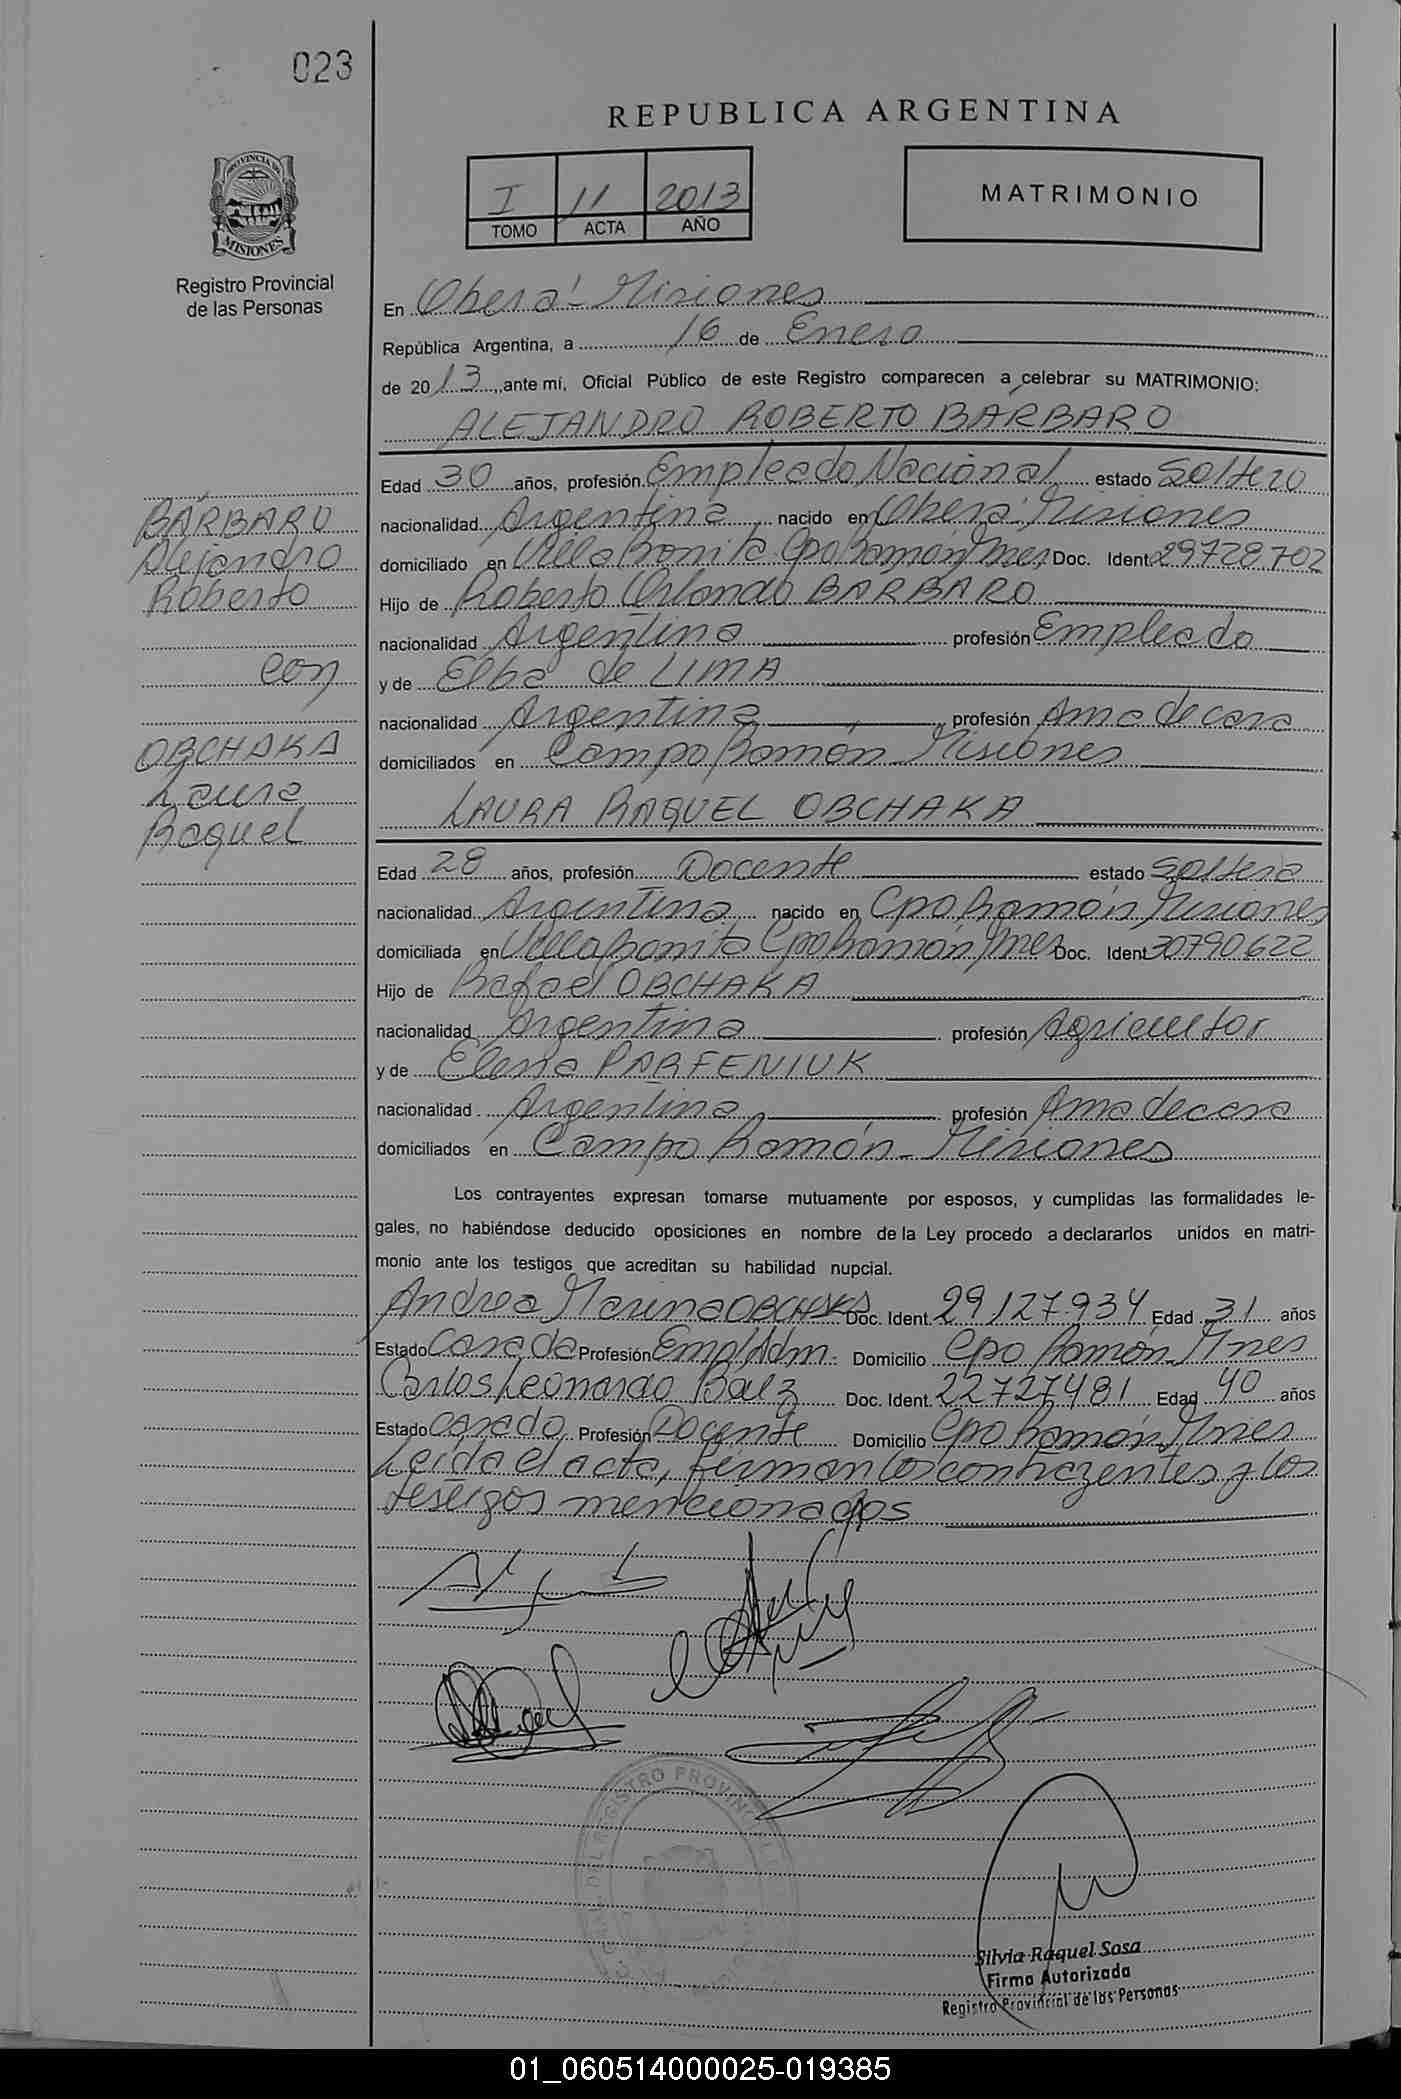 023
REPUBLICA ARGENTINA
I 11 2013
TOMO ACTA AÑO
MATRIMONIO
PROVINCIA DE
MISIONES
Registro Provincial
de las Personas
En Oberá - Misiones
República Argentina, a 16 de Enero
de 2013, ante mí, Oficial Público de este Registro comparecen a celebrar su MATRIMONIO:
ALEJANDRO ROBERTO BÁRBARO
Edad 30 años, profesión Empleado Nacional estado Soltero
nacionalidad Argentina nacido en Oberá Misiones
domiciliado en Villa Bonita Cpo Ramón Mnes Doc. Ident 29728.702
Hijo de Roberto Orlando BARBARO
nacionalidad Argentina profesión Empleado
y de Elba de LIMA
nacionalidad Argentina profesión Ama de casa
domiciliados en Campo Ramón Misiones
LAURA RAQUEL OBCHAKA
Edad 28 años, profesión Docente estado Soltera
nacionalidad Argentina nacido en Cpo Ramón Misiones
domiciliada en Villa Bonita Cpo Ramón Mnes Doc. Ident 30790.622
Hijo de Rafael OBCHAKA
nacionalidad Argentina profesión Agricultor
y de Elena PARFENIUK
nacionalidad Argentina profesión Ama de casa
domiciliados en Campo Ramón - Misiones
Los contrayentes expresan tomarse mutuamente por esposos, y cumplidas las formalidades le-
gales, no habiéndose deducido oposiciones en nombre de la Ley procedo a declararlos unidos en matri-
monio ante los testigos que acreditan su habilidad nupcial.
Andrea Marina OBCHAKA Doc. Ident. 29.127.934 Edad 31 años
Estado Casada Profesión Empl Adm. Domicilio Cpo Ramón Mnes
Carlos Leonardo Baez Doc. Ident. 22727481 Edad 40 años
Estado Casado Profesión Docente Domicilio Cpo Ramón Mnes
Leída el acta, firman los contrayentes y los
testigos mencionados
BÁRBARO
Alejandro
Roberto
con
OBCHAKA
Laura
Raquel
DEL REGISTRO PROVINCIAL
Silvia Raquel Sosa
Firma Autorizada
Registro Provincial de las Personas
01_060514000025-019385